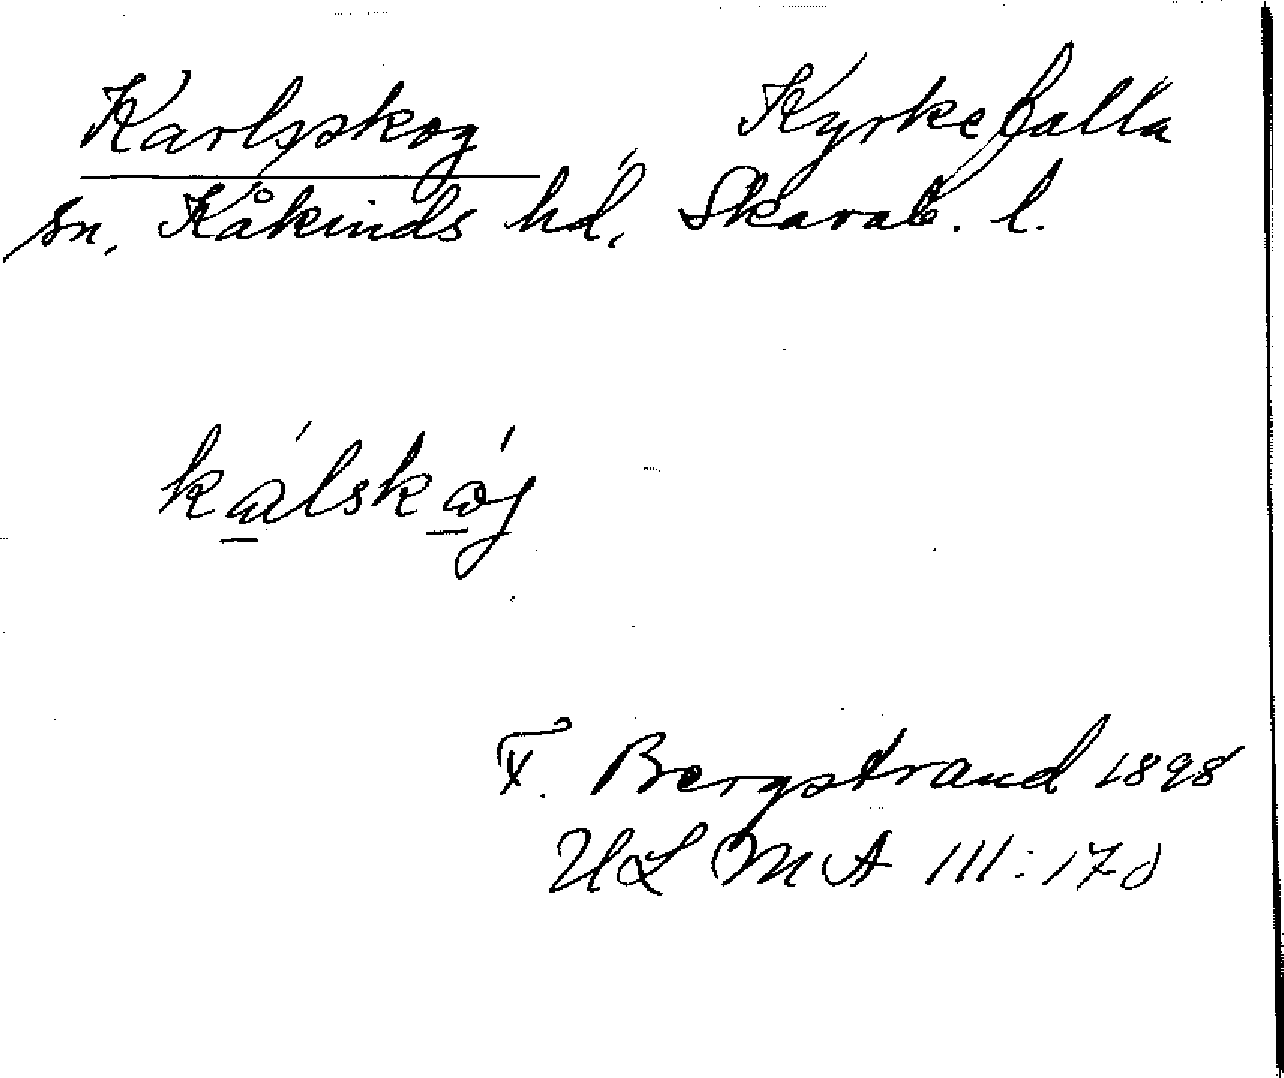 Karlsskog Kyrkefalla
sn, Kåkinds hd, Skarab. l.
kálskój
F. Bergstrand 1898
ULMA III:178